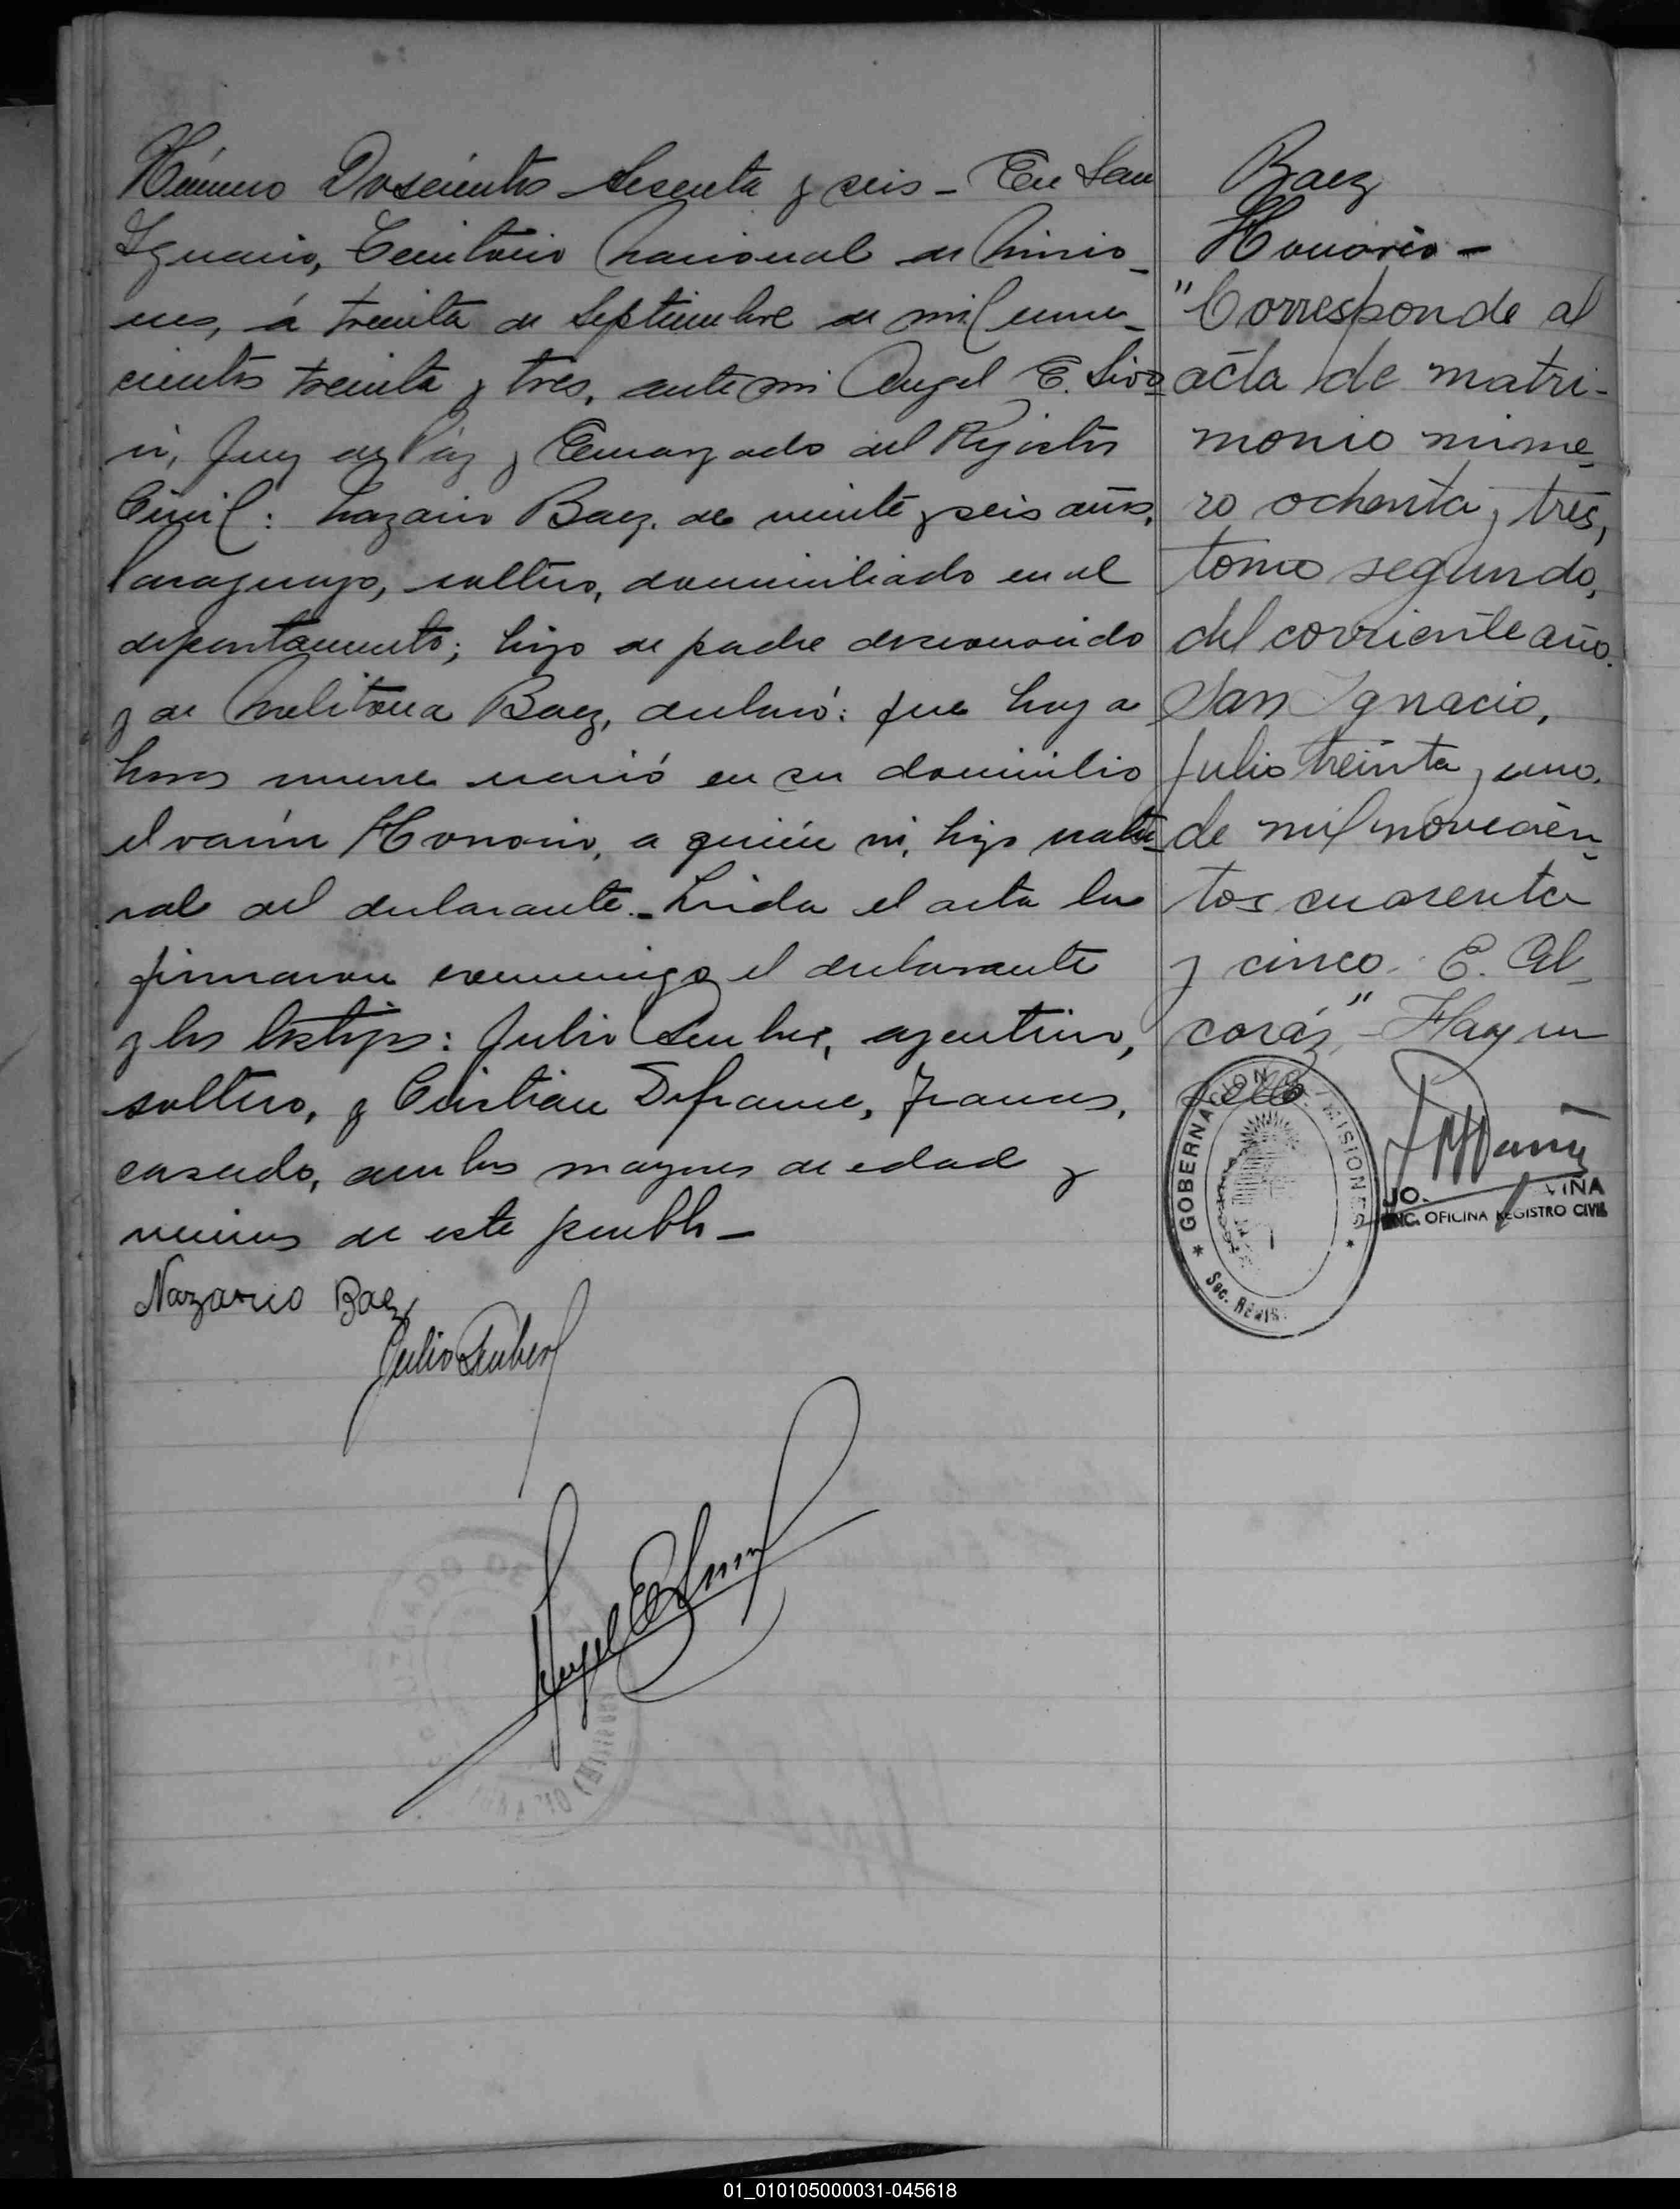 Número Doscientos Sesenta y seis - En San
Ignacio, Territorio Nacional de Misio-
nes, á treinta de Septiembre de mil nove-
cientos treinta y tres, ante mi Angel E.
Juez de Paz y Encargado del Registro
Civil: Nazario Baez, de veinte y seis años,
Paraguayo, soltero, domiciliado en el
departamento; hijo de padre desconocido
y de Melitona Baez, declaró: que hoy a
horas nueve nació en su domicilio
el varón Honorio, a quién vi, hijo natu-
ral del declarante. - Leida el acta la
firmaron conmigo el declarante
y los testigos: Julio argentino,
soltero, y Cristian Frances,
casado, ambos mayores de edad y
vecinos de este pueblo -
Nazario Baez
Julio
Angel E.
Baez
Honorio -
"Corresponde al
acta de matri-
monio núme-
ro ochenta y tres,
tomo segundo,
del corriente año.
San Ignacio,
Julio treinta y uno,
de mil novecien-
tos cuarenta
y cinco. E. Al-
coráz" - Hay un
sello
* GOBERNACION DE MISIONES *
Sec. REGIS
JO. VIÑA
ENC. OFICINA REGISTRO CIVIL
01_010105000031-045618